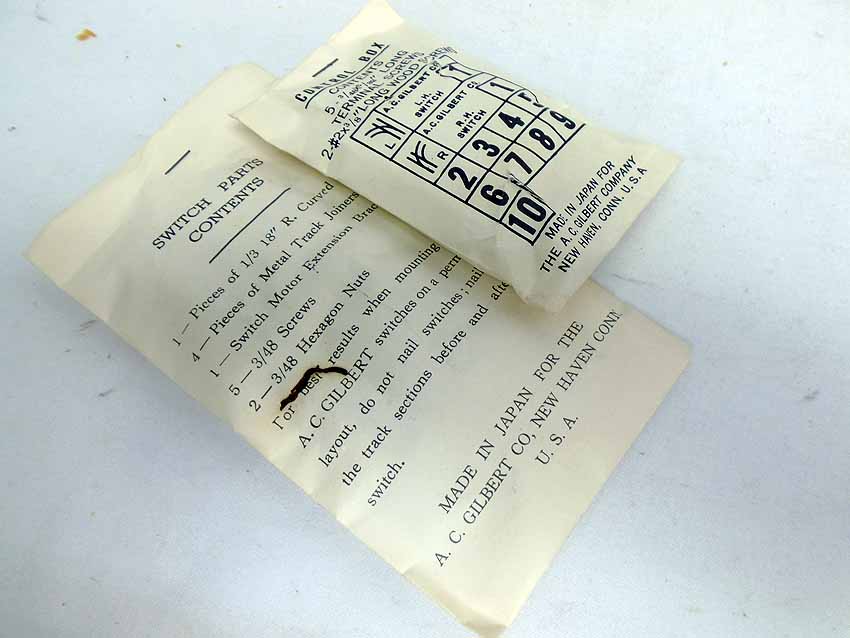 SWITCH PARTS
CONTENTS
1 — Pieces of 1/3 18" R. Curved
4 — Pieces of Metal Track Joiners
1 — Switch Motor Extension
5 — 3/48 Screws
2 — 3/48 Hexagon Nuts
For best results when mounting
A. C. GILBERT switches on a
layout, do not nail switches; nail
the track sections before and
switch.
MADE IN JAPAN FOR THE
A. C. GILBERT CO, NEW HAVEN CONN.
U. S. A.
CONTROL BOX
CONTENTS
5 LONG
TERMINAL SCREWS
2-#2x3/8" LONG WOOD SCREWS
A.C. GILBERT CO
L
L.H.
SWITCH
1
A.C. GILBERT
R
R.H.
SWITCH
1
2 3 4
6 7 8 9
10
MADE IN JAPAN FOR
THE A. C. GILBERT COMPANY
NEW HAVEN, CONN. U.S.A